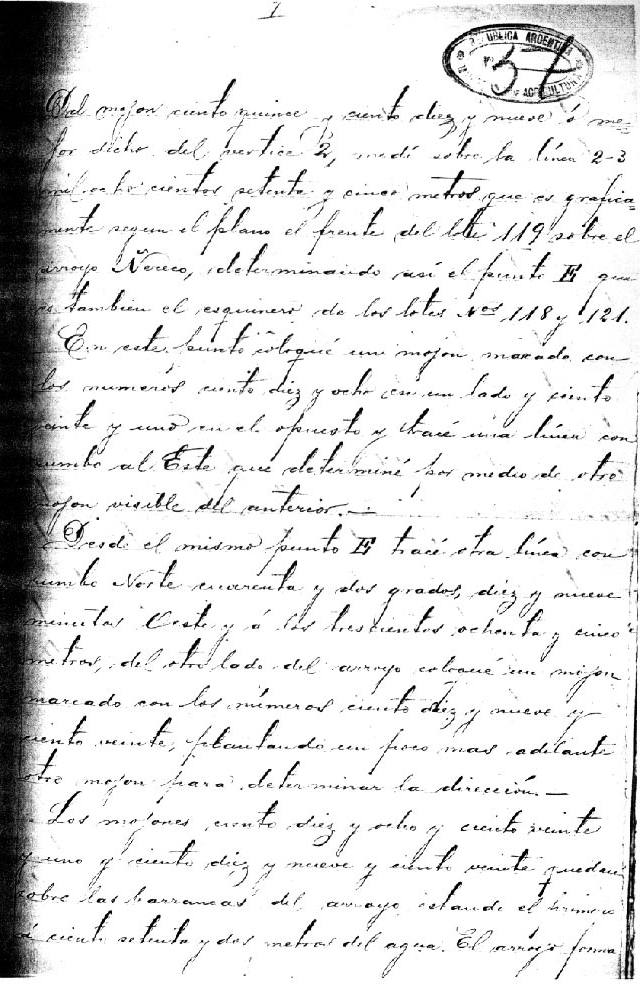 I
REPUBLICA ARGENTINA
Nº 37
AGRICULTURA
Del mojon ciento quince y ciento diez y nueve ó me=
jor dicho del vertice 2, medí sobre la línea 2-3
mil ocho cientos setenta y cinco metros que es grafica=
mente segun el plano el frente del lote 119 sobre el
arroyo Ñireco, determinando así el punto E que
es tambien el esquinero de los lotes Nos 118 y 121.
En este punto coloqué un mojon marcado con
los numeros ciento diez y ocho en un lado y ciento
veinte y uno en el opuesto y tracé una línea con
rumbo al Este que determiné por medio de otro
mojon visible del anterior.—
Desde el mismo punto E tracé otra línea con
rumbo Norte cuarenta y dos grados, diez y nueve
minutos Oeste y á los trescientos ochenta y cinco
metros, del otro lado del arroyo coloqué un mojon
marcado con los números ciento diez y nueve y
ciento veinte, plantando un poco mas adelante
otro mojon para determinar la dirección.—
Los mojones ciento diez y ocho y ciento veinte
y uno y ciento diez y nueve y ciento veinte quedan
sobre las barrancas del arroyo estando el primero
á ciento setenta y dos metros del agua. El arroyo forma